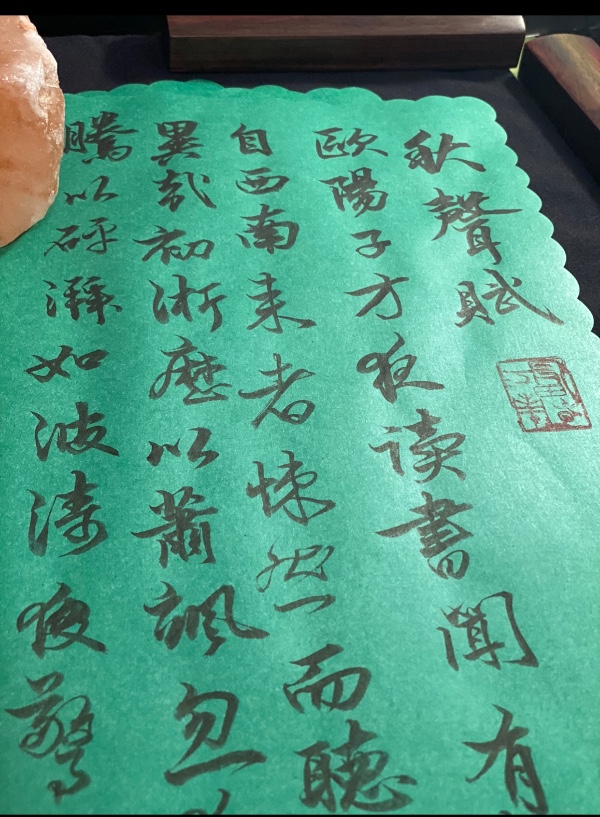 秋聲賦
歐陽子方夜读書聞有
自西南来者悚然而聽
異哉初淅瀝以蕭颯忽
騰以砰湃如波涛夜驚